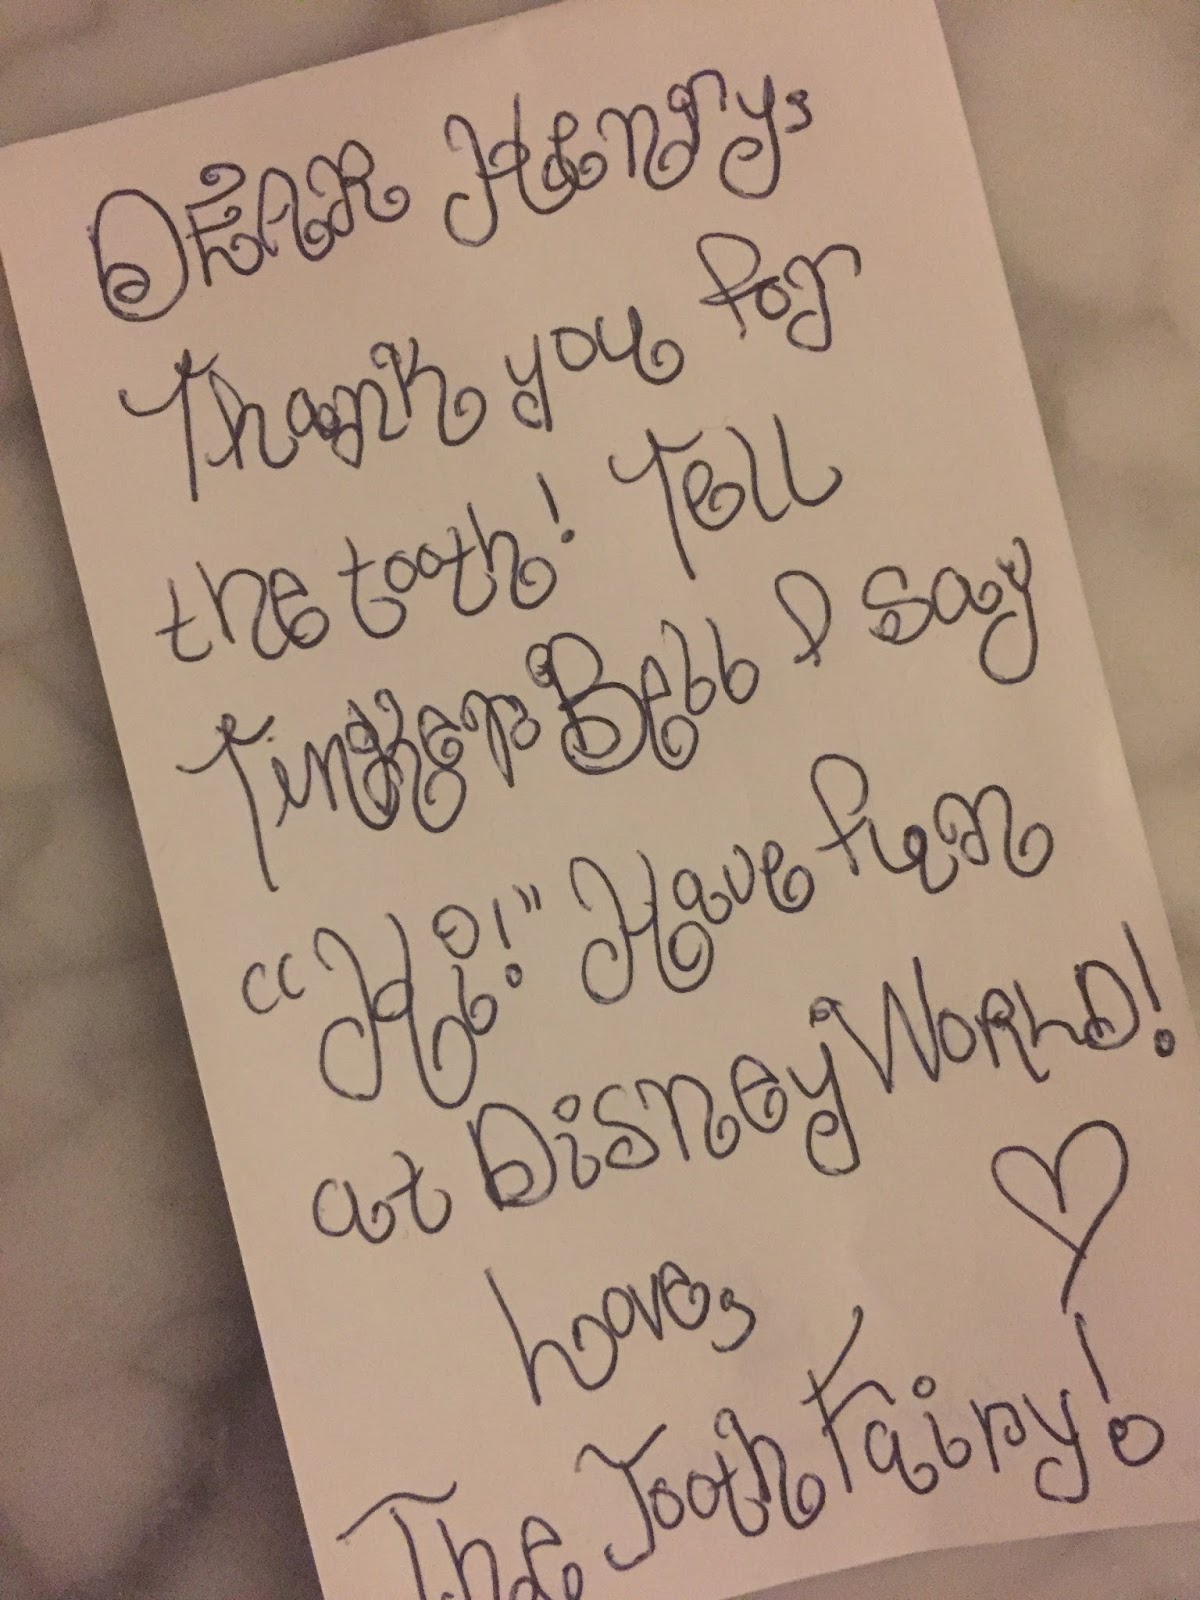 DEAR Henry,
Thank you for
the tooth! Tell
TinkerBell I say
“Hi!” Have fun
at Disney WORLD!
Love,
The Tooth Fairy!